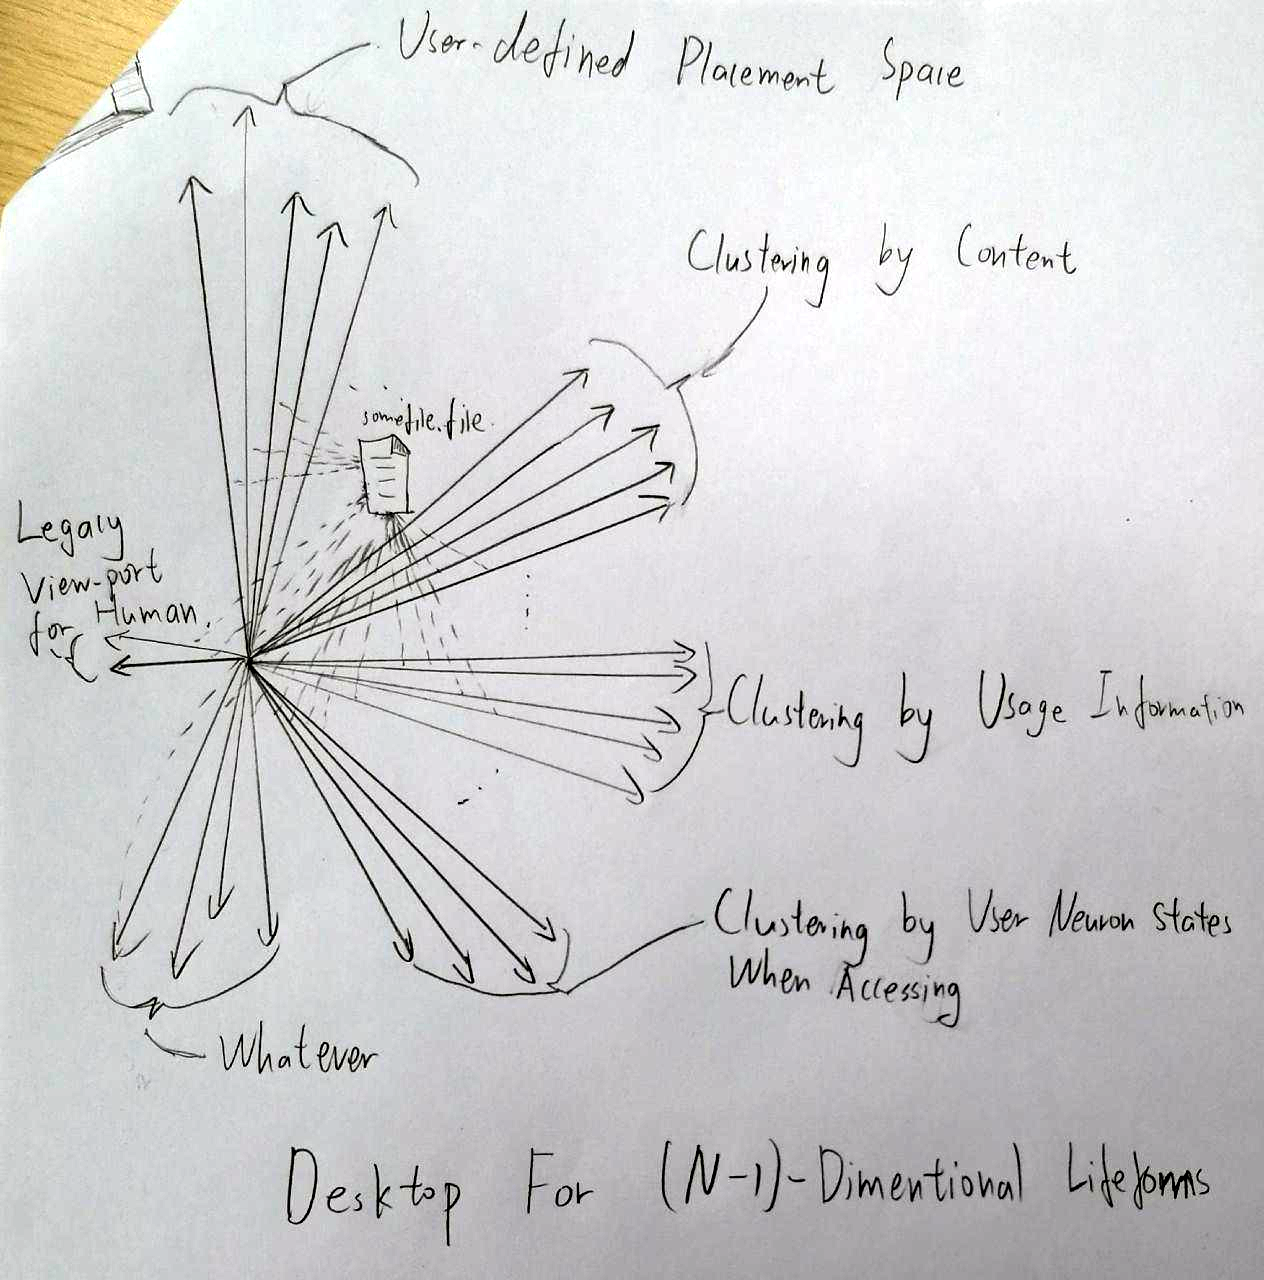 User-defined Placement Space
Clustering by Content
somefile.file
Legacy
View-port
for Human.
Clustering by Usage Information
Clustering by User Neuron States
When Accessing
Whatever
Desktop For (N-1)-Dimentional Lifeforms